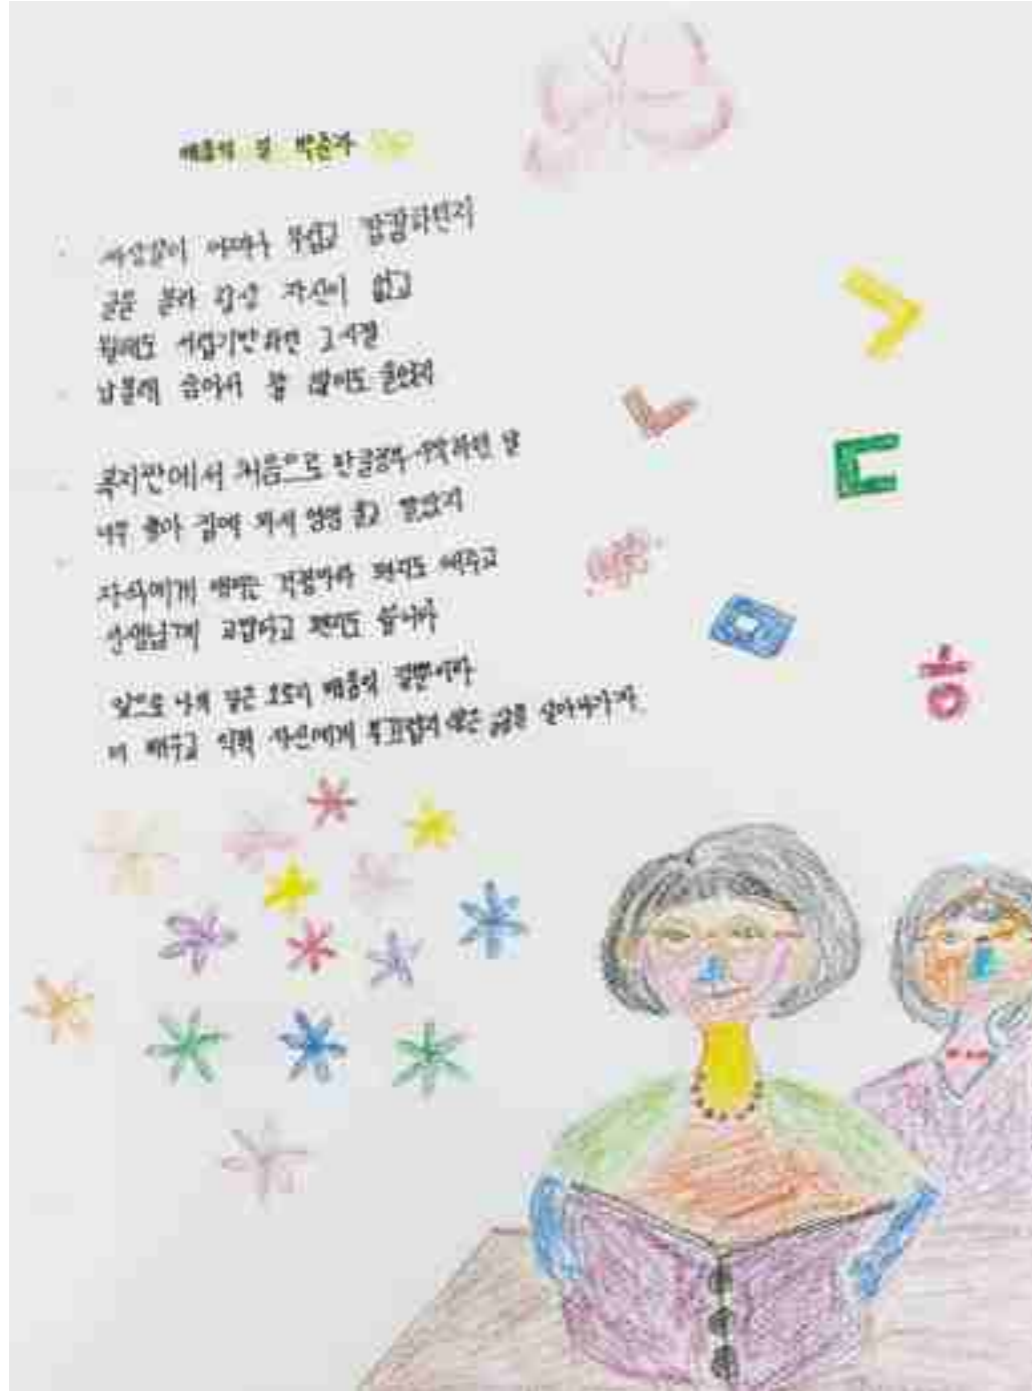 배움의 길 박춘자
세상살이 어찌나 무섭고 깜깜하던지
글을 몰라 항상 자신이 없고
뭘해도 서럽기만 하던 그 시절
남몰래 숨어서 참 많이도 울었지
복지관에서 처음으로 한글공부 시작하던 날
너무 좋아 집에 와서 엉엉 울고 말았지
자식에게 애미는 걱정마라 편지도 써주고
선생님께 고맙다고 편지도 쓴나다
앞으로 나의 길은 오로지 배움의 길뿐이다
더 배우고 익혀 자신에게 부끄럽지 않은 삶을 살아나가자
ㄱ
ㄴ
ㄷ
ㅁ
ㅎ